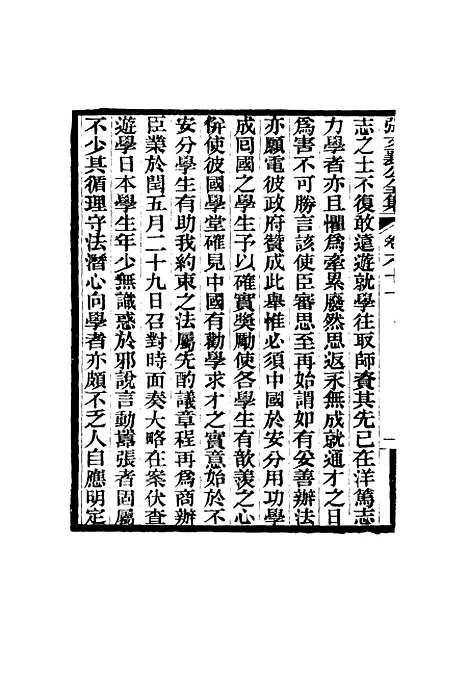 張文襄公全集 卷六十一
志之士不復敢遠遊就學往取師資其先已在洋篤志
力學者亦且懼爲牽累廢然思返永無成就通才之日
爲害不可勝言該使臣審思至再始謂如有妥善辦法
亦願電彼政府贊成此舉惟必須中國於安分用功學
成囘國之學生予以確實獎勵使各學生有歆羨之心
俾使彼國學堂確見中國有勸學求才之實意始於不
安分學生有助我約束之法屬先酌議章程再爲商辦
臣業於閏五月二十九日召對時面奏大略在案伏查
遊學日本學生年少無識惑於邪說言動囂張者固屬
不少其循理守法潛心向學者亦頗不乏人自應明定